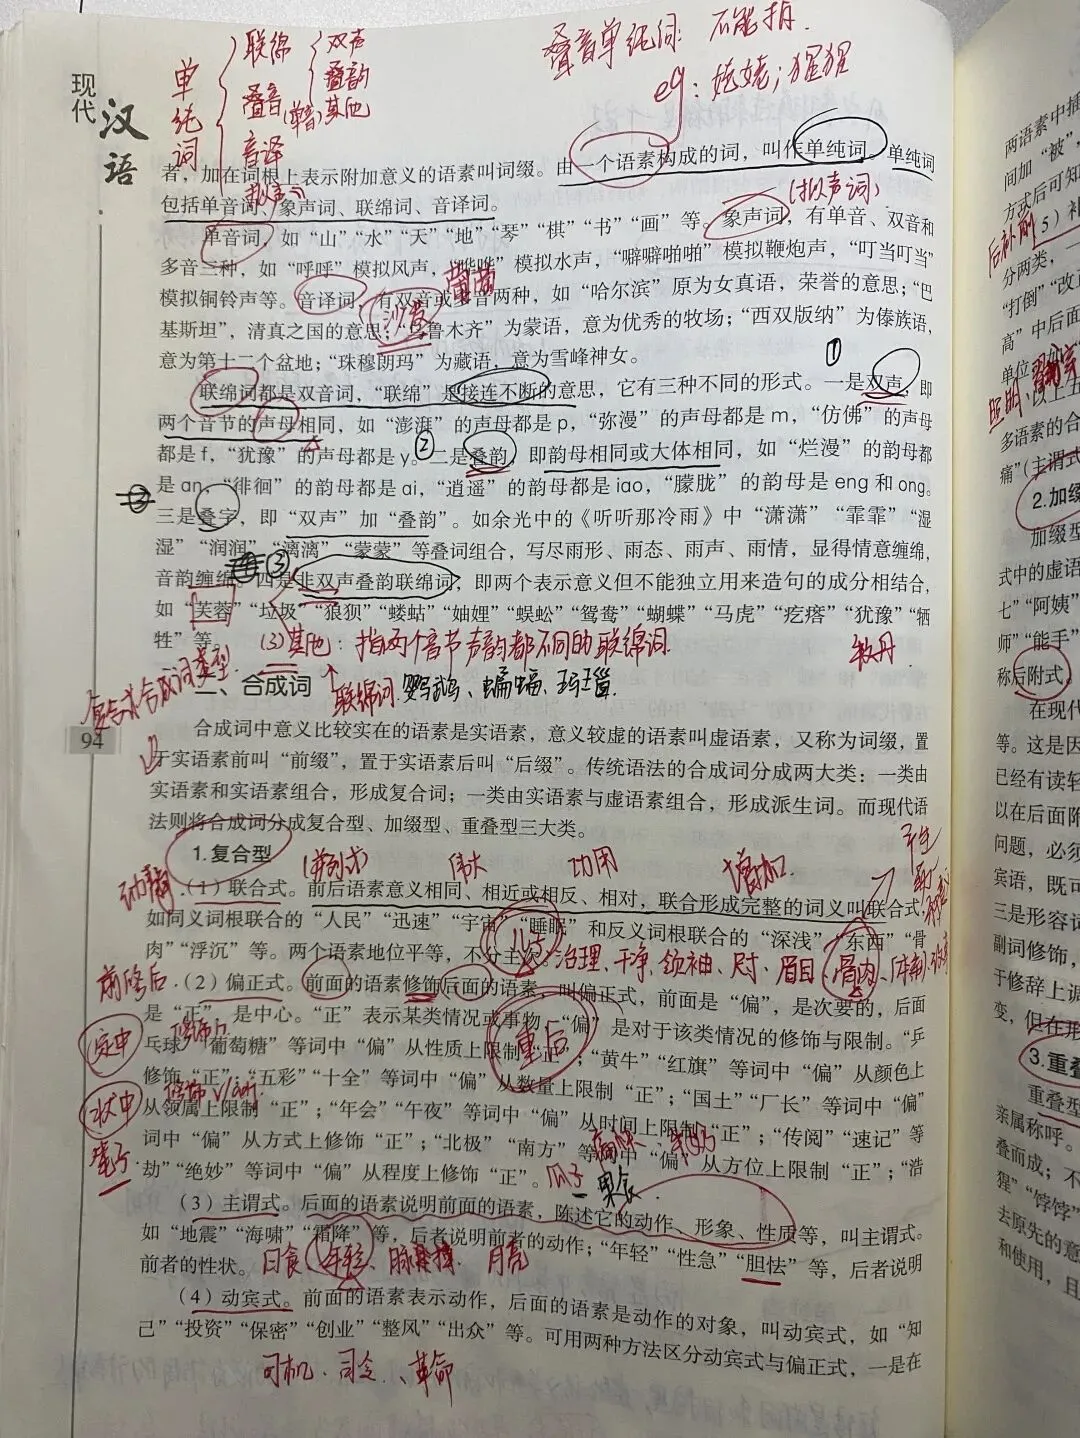 单纯词
联绵
双声
叠韵
其他
叠音
音译
拟声
叠音单纯词 不能拆
eg：姥姥；猩猩
现代
汉语
者，加在词根上表示附加意义的语素叫词缀。由一个语素构成的词，叫作单纯词。单纯词
包括单音词、象声词、联绵词、音译词。
（拟声词）
单音词，如“山”“水”“天”“地”“琴”“棋”“书”“画”等。象声词，有单音、双音和
多音三种，如“呼呼”模拟风声，“哗哗”模拟水声，“噼噼啪啪”模拟鞭炮声，“叮当叮当”
模拟铜铃声等。音译词，有双音或多音两种，如“哈尔滨”原为女真语，荣誉的意思；“巴
基斯坦”，清真之国的意思；“乌鲁木齐”为蒙语，意为优秀的牧场；“西双版纳”为傣族语，
意为第十二个盆地；“珠穆朗玛”为藏语，意为雪峰神女。
沙发
①
联绵词都是双音词，“联绵”是接连不断的意思，它有三种不同的形式。一是双声，即
两个音节的声母相同，如“澎湃”的声母都是 p，“弥漫”的声母都是 m，“仿佛”的声母
都是 f，“犹豫”的声母都是 y。②二是叠韵，即韵母相同或大体相同，如“烂漫”的韵母都
是 an，“徘徊”的韵母都是 ai，“逍遥”的韵母都是 iao，“朦胧”的韵母是 eng 和 ong。
三是叠字，即“双声”加“叠韵”。如余光中的《听听那冷雨》中“潇潇”“霏霏”“湿
湿”“润润”“漓漓”“蒙蒙”等叠词组合，写尽雨形、雨态、雨声、雨情，显得情意缠绵，
音韵缠绵。③四是非双声叠韵联绵词，即两个表示意义但不能独立用来造句的成分相结合，
如“芙蓉”“垃圾”“狼狈”“蝼蛄”“妯娌”“蜈蚣”“鸳鸯”“蝴蝶”“马虎”“疙瘩”“犹豫”“牺
牲”等。
(3)其他：指两个音节声韵都不同的联绵词
牡丹
联绵词 鹦鹉、蝙蝠、玛瑙.
复合式合成词类型
二、合成词
合成词中意义比较实在的语素是实语素，意义较虚的语素叫虚语素，又称为词缀，置
于实语素前叫“前缀”，置于实语素后叫“后缀”。传统语法的合成词分成两大类：一类由
实语素和实语素组合，形成复合词；一类由实语素与虚语素组合，形成派生词。而现代语
法则将合成词分成复合型、加缀型、重叠型三大类。
94
1.复合型
（并列式） 伟大 功用 增加
（1）联合式。前后语素意义相同、相近或相反、相对，联合形成完整的词义叫联合式，
如同义词根联合的“人民”“迅速”“宇宙”“睡眠”和反义词根联合的“深浅”“东西”“骨
肉”“浮沉”等。两个语素地位平等，不分主次。
治理、干净、领袖、尺寸、眉目、骨肉、
前修后
（2）偏正式。前面的语素修饰后面的语素，叫偏正式，前面是“偏”，是次要的，后面
是“正”，是中心。“正”表示某类情况或事物，“偏”是对于该类情况的修饰与限制。“乒
乓球”“葡萄糖”等词中“偏”从性质上限制“正”；“黄牛”“红旗”等词中“偏”从颜色上
修饰“正”；“五彩”“十全”等词中“偏”从数量上限制“正”；“国土”“厂长”等词中“偏”
从领属上限制“正”；“年会”“午夜”等词中“偏”从时间上限制“正”；“传阅”“速记”等
词中“偏”从方式上修饰“正”；“北极”“南方”等词中“偏”从方位上限制“正”；“浩
劫”“绝妙”等词中“偏”从程度上修饰“正”。
重后
定中 修饰n
状中 修饰v/adj.
瓜子
（3）主谓式。后面的语素说明前面的语素，陈述它的动作、形象、性质等，叫主谓式。
如“地震”“海啸”“霜降”等，后者说明前者的动作；“年轻”“性急”“胆怯”等，后者说明
前者的性状。
日食 年轻、脉搏 月亮
（4）动宾式。前面的语素表示动作，后面的语素是动作的对象，叫动宾式，如“知
己”“投资”“保密”“创业”“整风”“出众”等。可用两种方法区分动宾式与偏正式，一是在
司机、司令、革命
两语素中插
间加“被”，
方式后可知
后补前
5）补
分两类，
“打倒”“改正
高”中后面
单位
以上五
多语素的合
痛”（主谓式
2.加缀
加缀型
式中的虚语
七”“阿姨”
师”“能手”
称后附式。
在现代
等。这是因
已经有读轻
以在后面附
问题，必须
宾语，既可
三是形容词
副词修饰，
于修辞上调
变，但在形
3.重叠
重叠型
亲属称呼。
叠而成；不
猩”“饽饽”
去原先的意
和使用，且